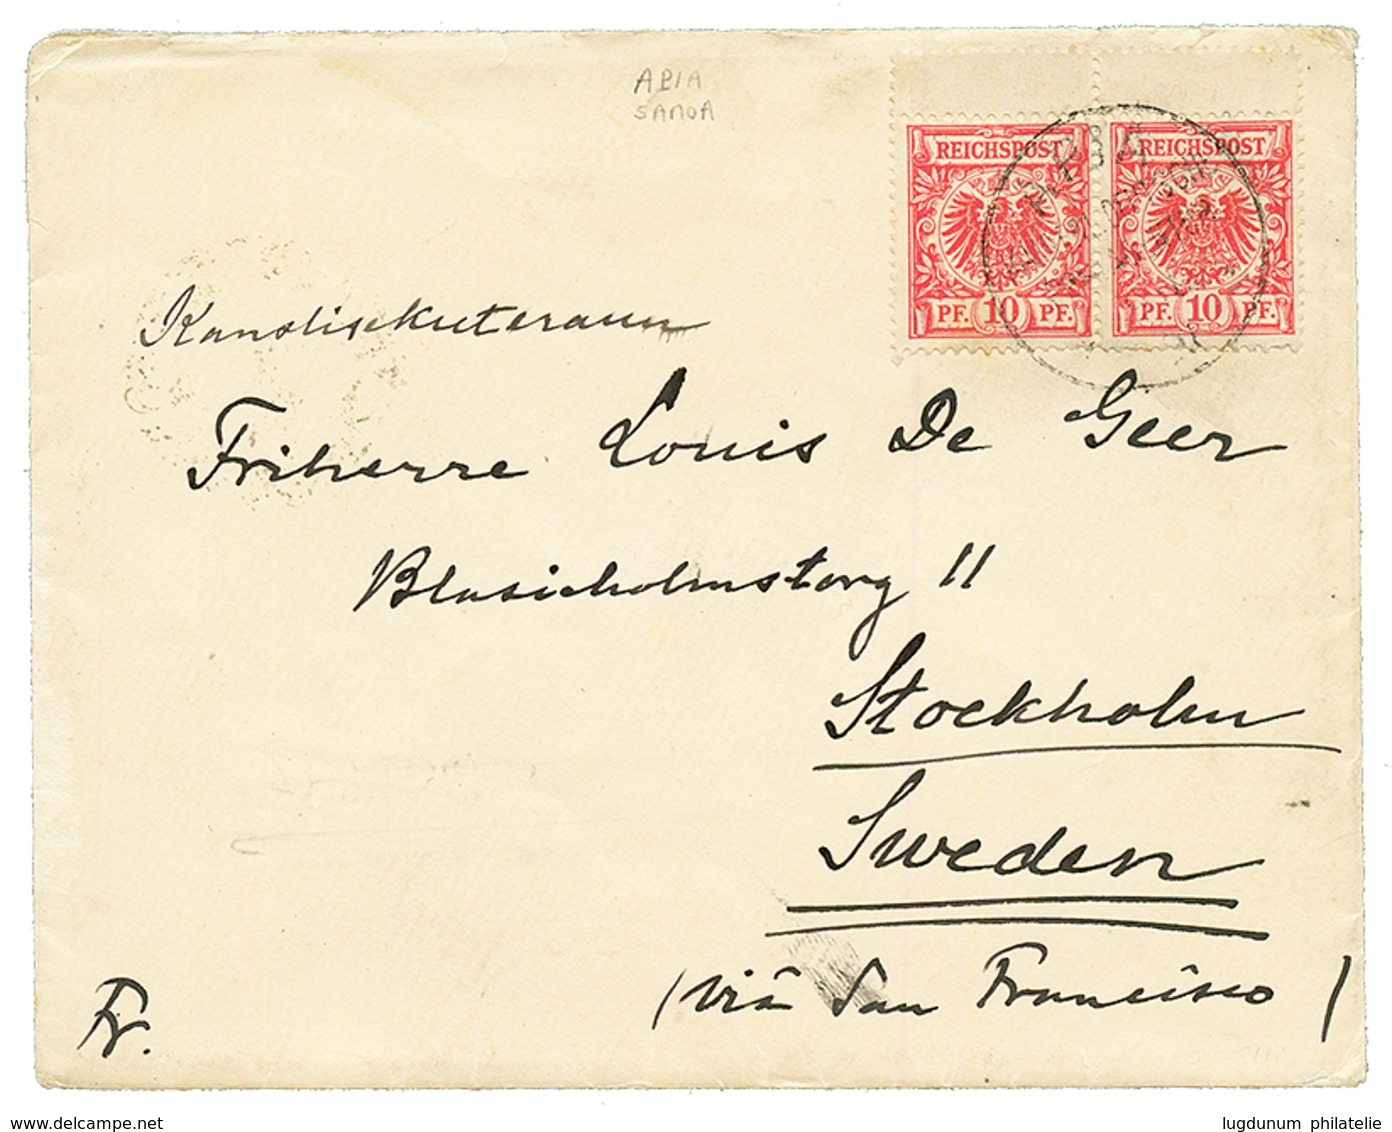 APIA
SAMOA
REICHSPOST REICHSPOST
PF. 10 PF. PF. 10 PF.
APIA
Friherre Louis De Geer
Blasieholmstorg 11
Stockholm
Sweden
(viâ San Francisco)
Fr.
www.delcampe.net
lugdunum philatelie